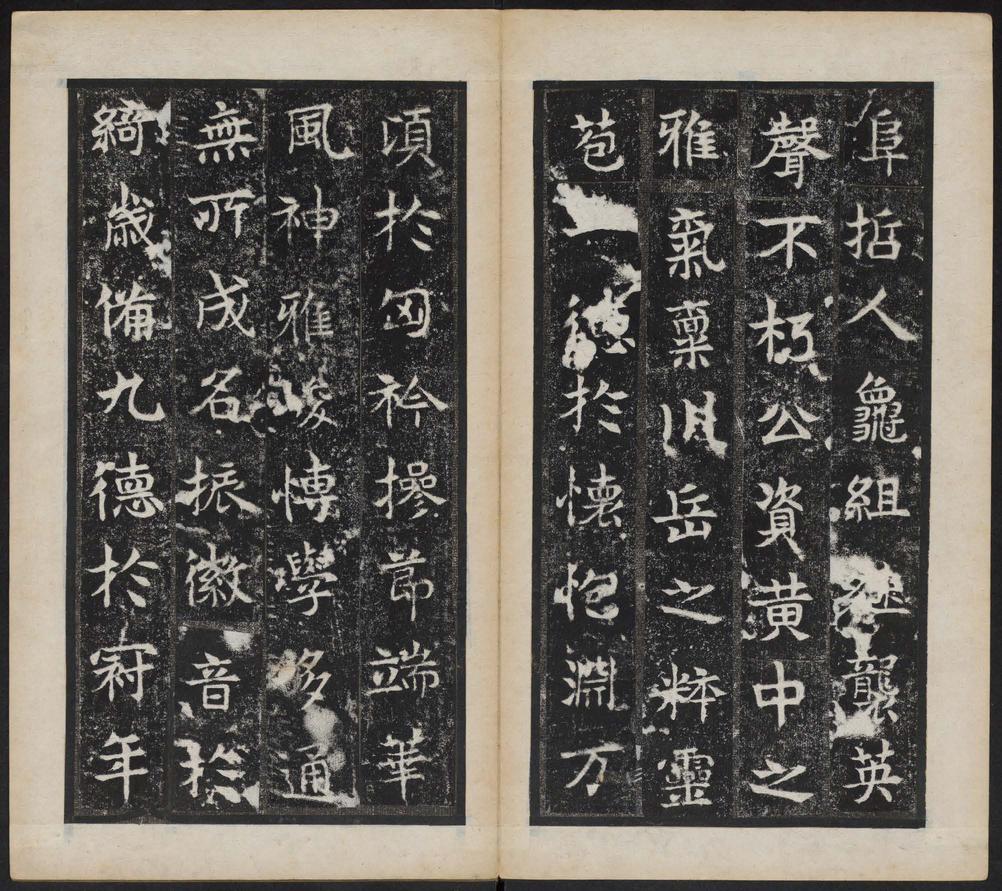 阜哲人龜組繼襲英
聲不朽公資黃中之
雅氣稟川岳之粹靈
苞德於懷抱淵万
頃於匈衿操節端華
風神雅峻博學多通
無所成名振徽音於
綺歲備九德於冠年